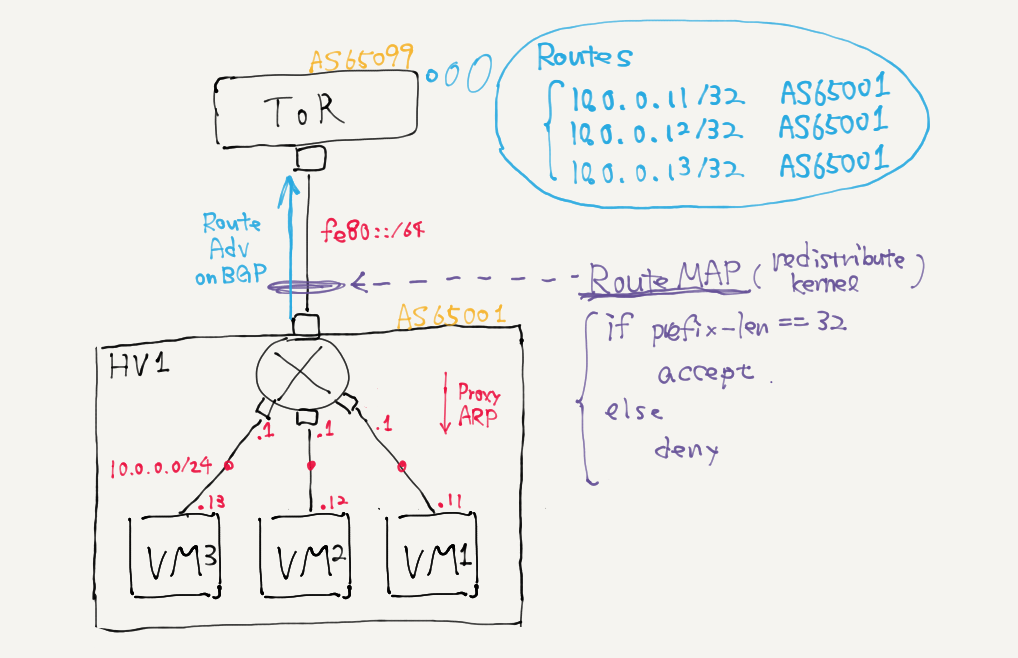 AS65099
ToR
Routes
10.0.0.11/32 AS65001
10.0.0.12/32 AS65001
10.0.0.13/32 AS65001
Route
Adv
on BGP
fe80::/64
Route MAP (redistribute
kernel)
if prefix-len == 32
accept
else
deny
AS65001
HV1
Proxy
ARP
.1
.1
.1
10.0.0.0/24
.13
.12
.11
VM3
VM2
VM1